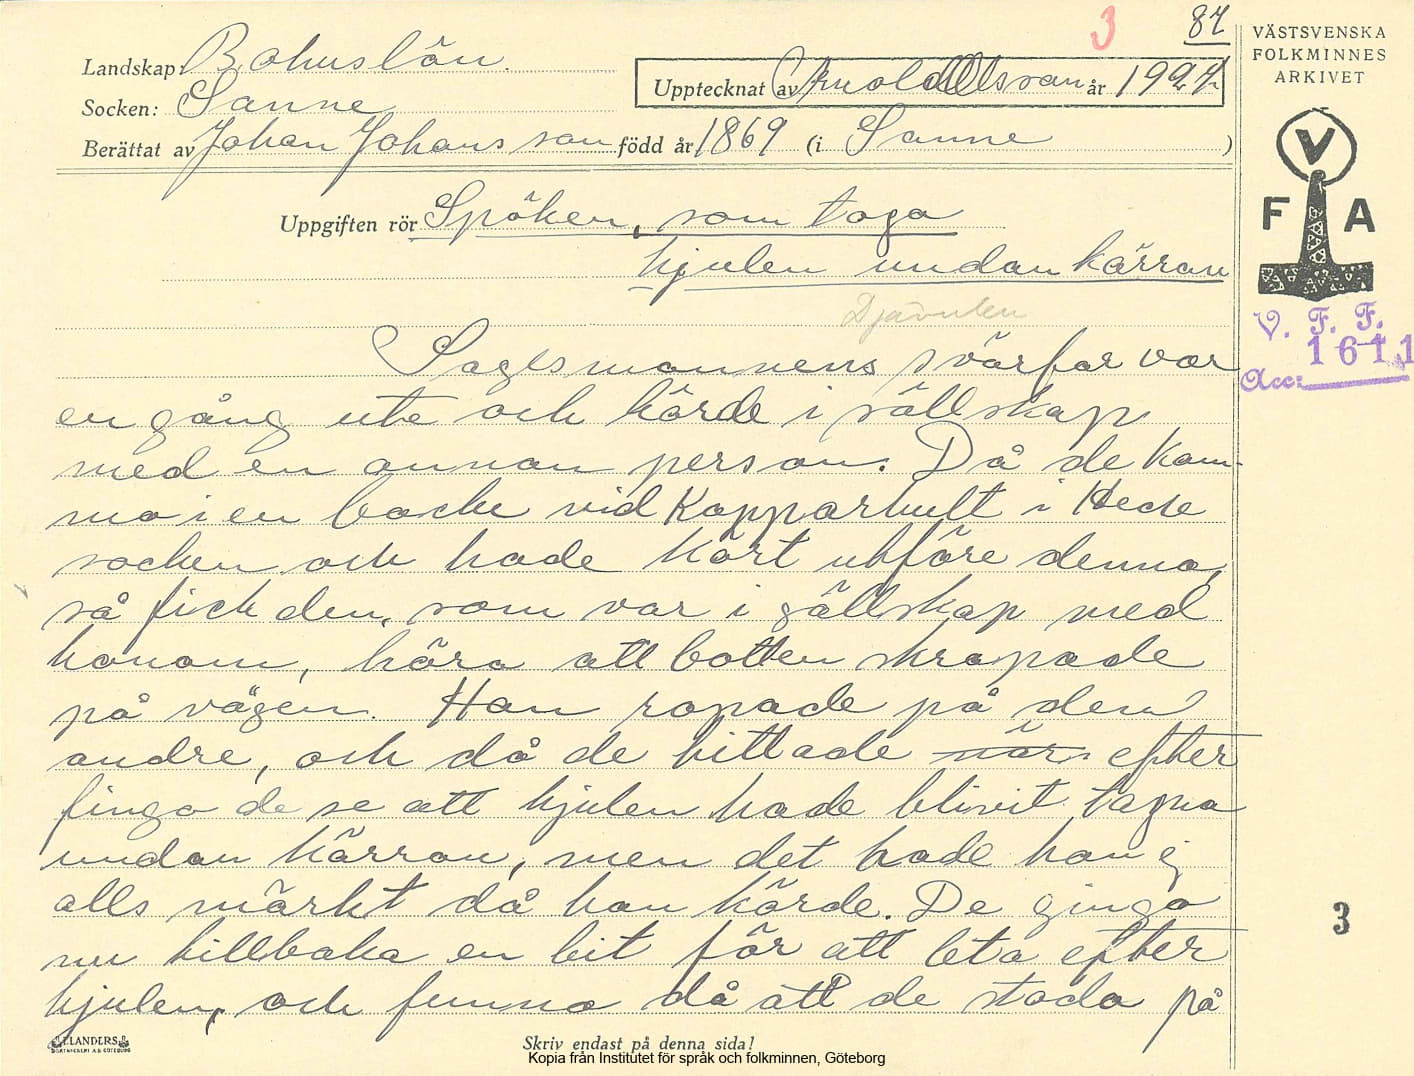 3
87
Landskap: Bohuslän.
Socken: Sanne
Upptecknat av Arnold Olsson år 1927
Berättat av Johan Johansson född år 1869 (i Sanne )
Uppgiften rör Spöken, som toga
hjulen undan kärran
Djävulen
Sagesmannens svärfar var
en gång ute och körde i sällskap
med en annan person. Då de kom-
mo i en backe vid Kopparhult i Hede
socken och hade kört utföre denna,
så fick den, som var i sällskap med
honom, höra att botten skrapade
på vägen. Han ropade på den
andre, och då de tittade när efter
fingo de se att hjulen hade blivit tagna
undan kärran, men det hade han ej
alls märkt då han körde. De gingo
nu tillbaka en bit för att leta efter
hjulen, och funno då att de stodo på
ELANDERS
BOKTRYCKERI A.B. GÖTEBORG
Skriv endast på denna sida!
Kopia från Institutet för språk och folkminnen, Göteborg
VÄSTSVENSKA
FOLKMINNES
ARKIVET
V
F A
V. F. F.
Acc: 1611
3